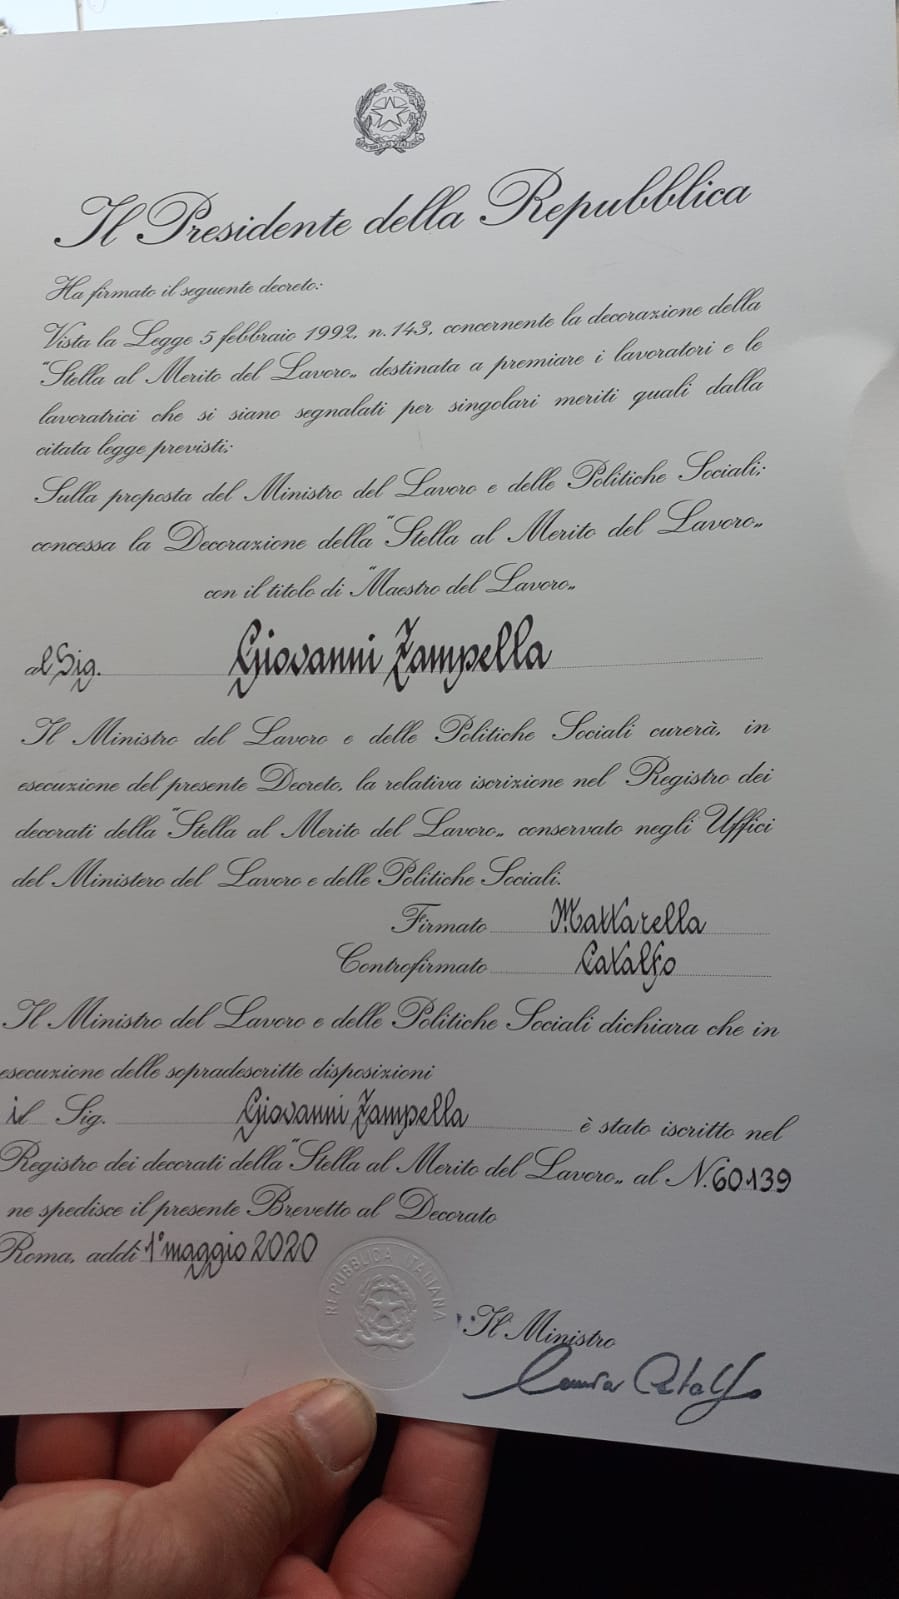 Il Presidente della Repubblica
Ha firmato il seguente decreto:
Vista la Legge 5 febbraio 1992, n.143, concernente la decorazione della
"Stella al Merito del Lavoro„ destinata a premiare i lavoratori e le
lavoratrici che si siano segnalati per singolari meriti quali dalla
citata legge previsti;
Sulla proposta del Ministro del Lavoro e delle Politiche Sociali;
concessa la Decorazione della "Stella al Merito del Lavoro„
con il titolo di "Maestro del Lavoro„
al Sig. Giovanni Zampella
Il Ministro del Lavoro e delle Politiche Sociali curerà, in
esecuzione del presente Decreto, la relativa iscrizione nel Registro dei
decorati della "Stella al Merito del Lavoro„ conservato negli Uffici
del Ministero del Lavoro e delle Politiche Sociali.
Firmato Mattarella
Controfirmato Catalfo
Il Ministro del Lavoro e delle Politiche Sociali dichiara che in
esecuzione delle sopradescritte disposizioni
il Sig. Giovanni Zampella è stato iscritto nel
Registro dei decorati della "Stella al Merito del Lavoro„ al N. 60139
ne spedisce il presente Brevetto al Decorato
Roma, addì 1° maggio 2020
REPUBBLICA ITALIANA
Il Ministro